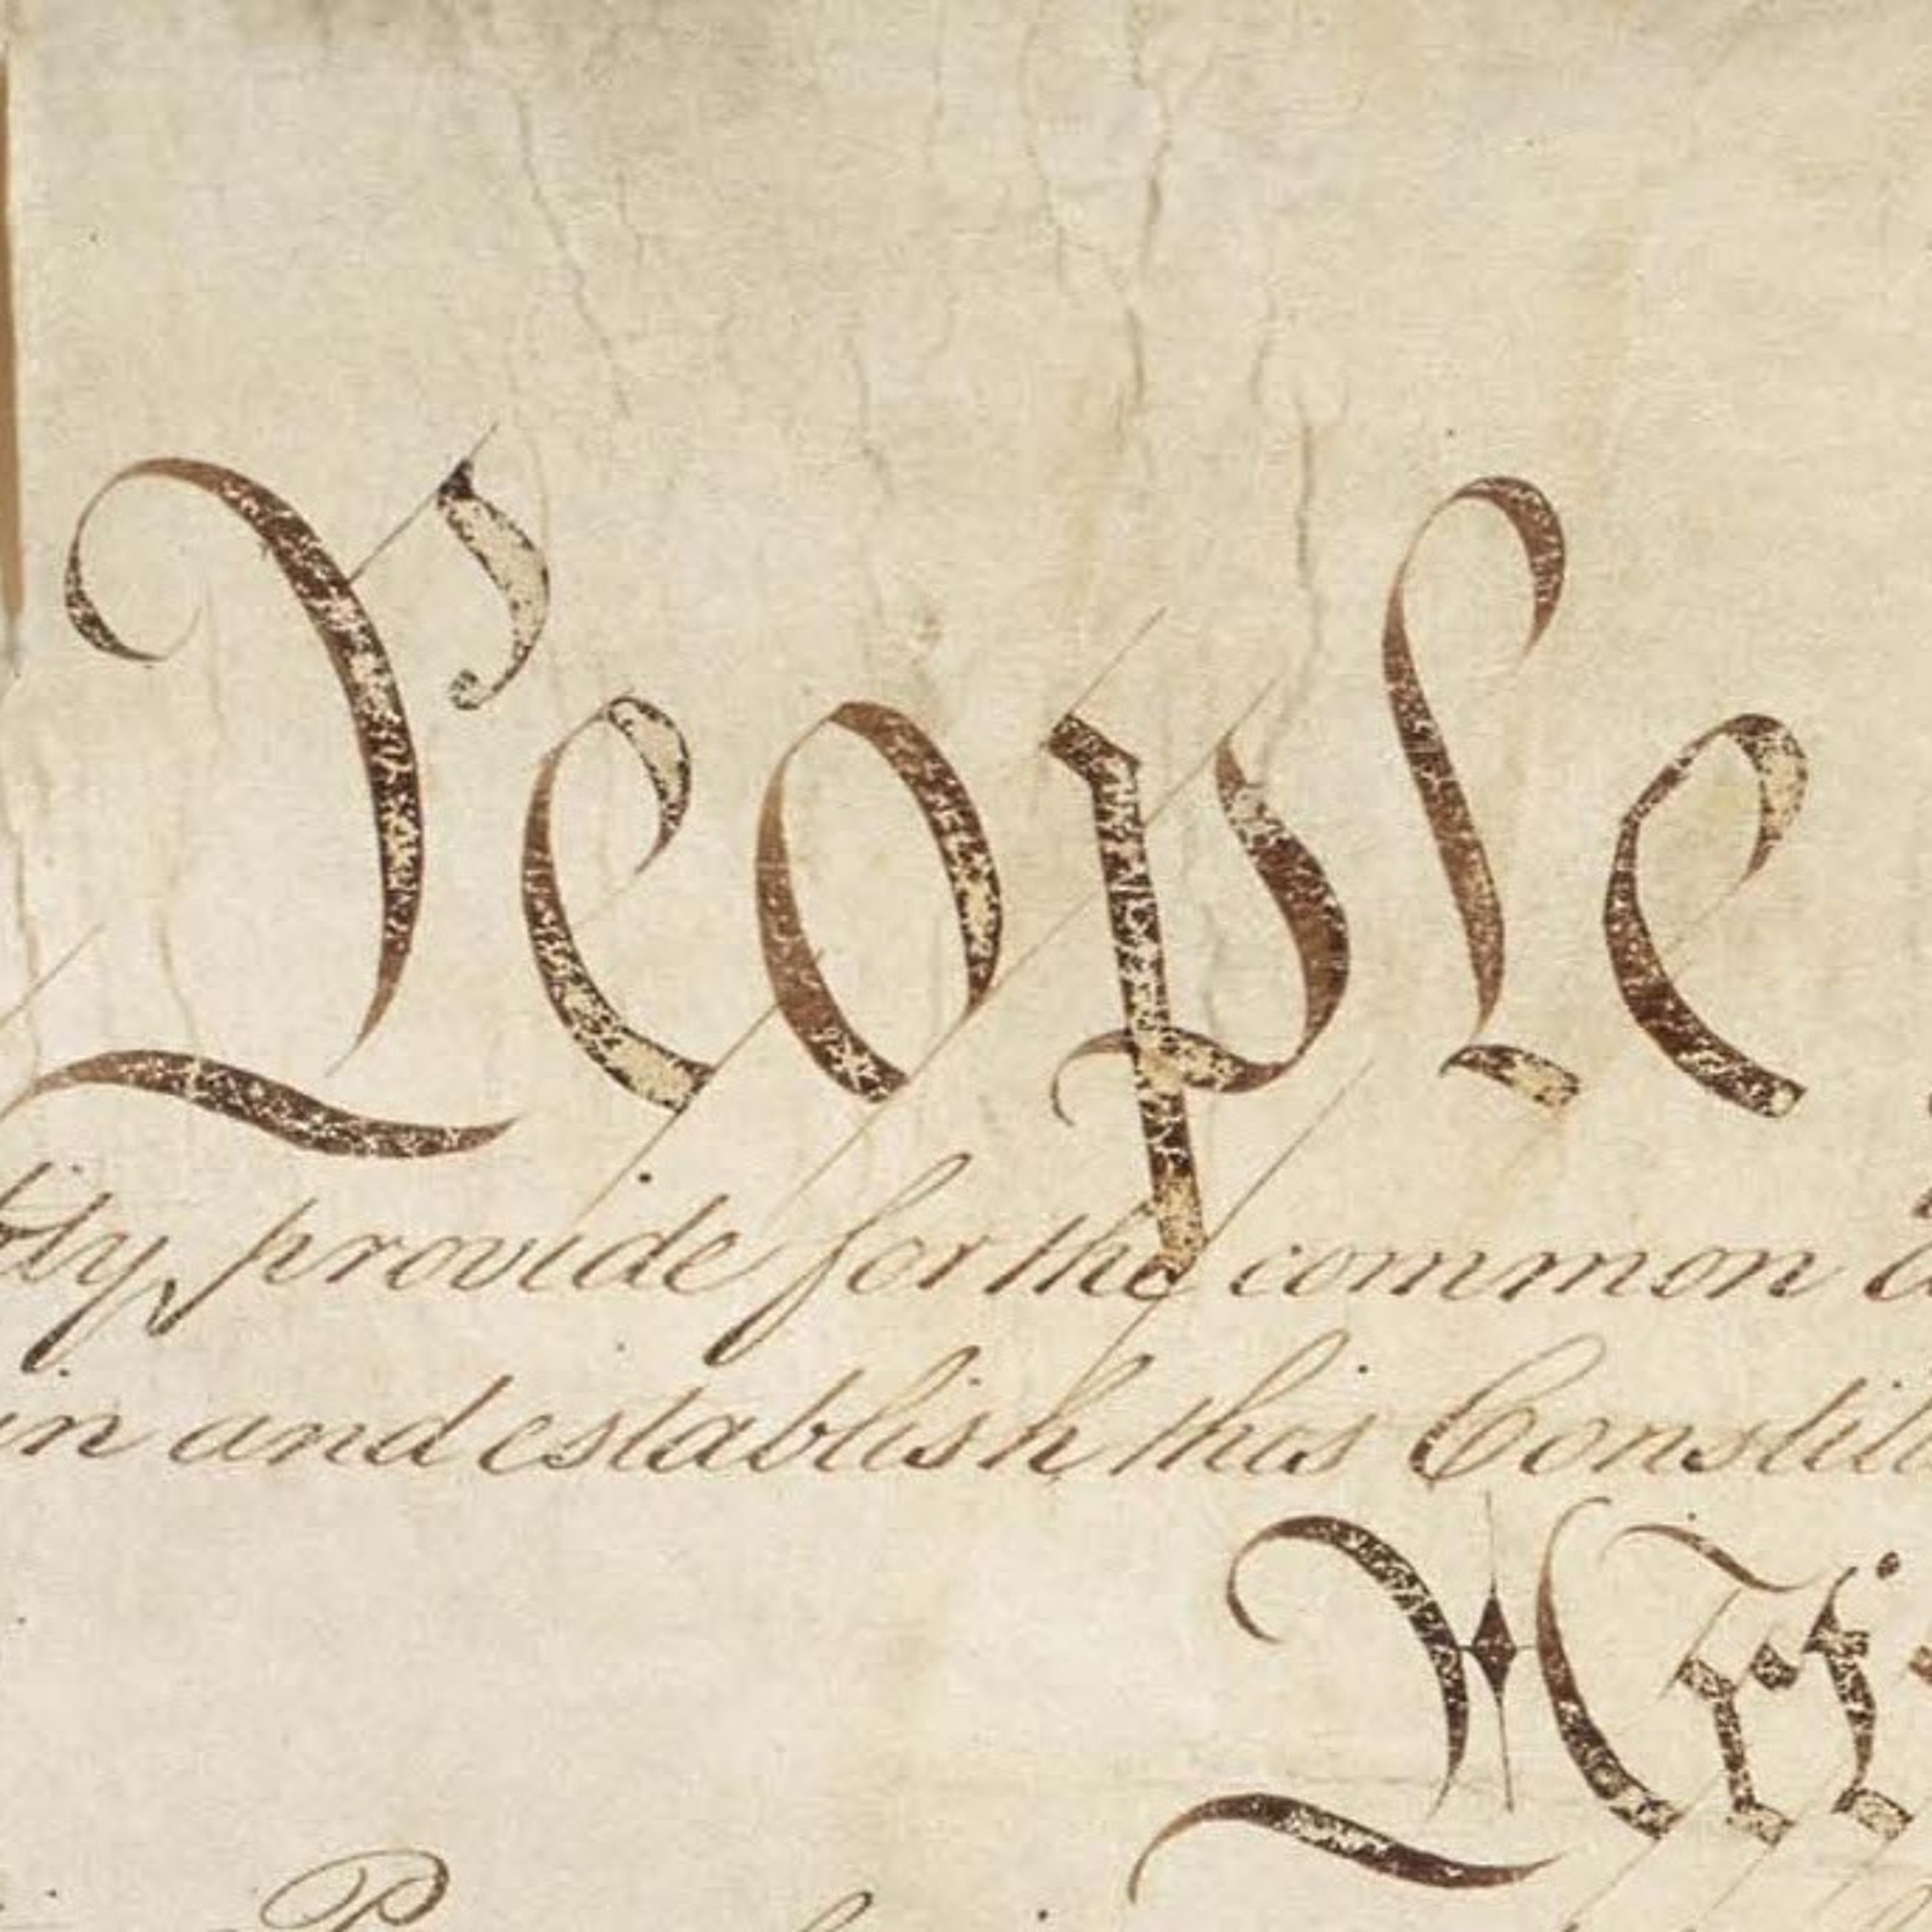 People
provide for the common
and establish this Constit